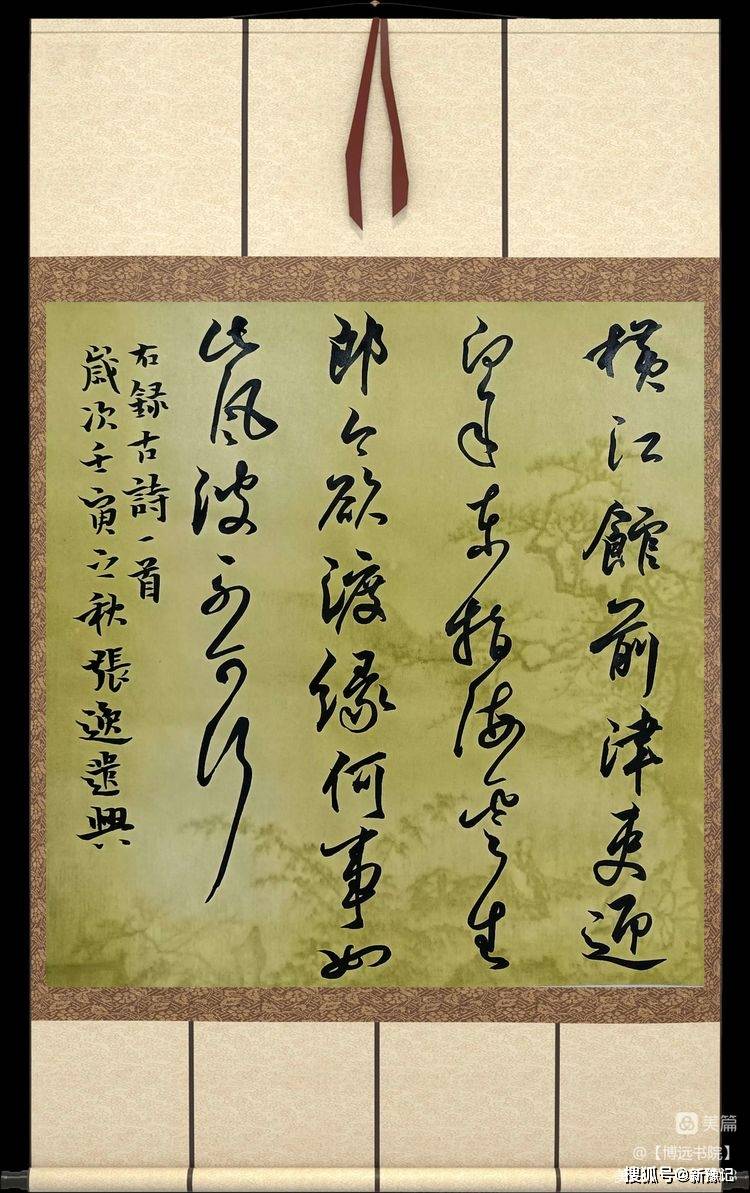 橫江館前津吏迎
向余東指海雲生
郎今欲渡緣何事如
此風波不可行
右録古詩一首
歲次壬寅立秋張逸遣興
美篇
@【博远书院】
搜狐号@新豫记